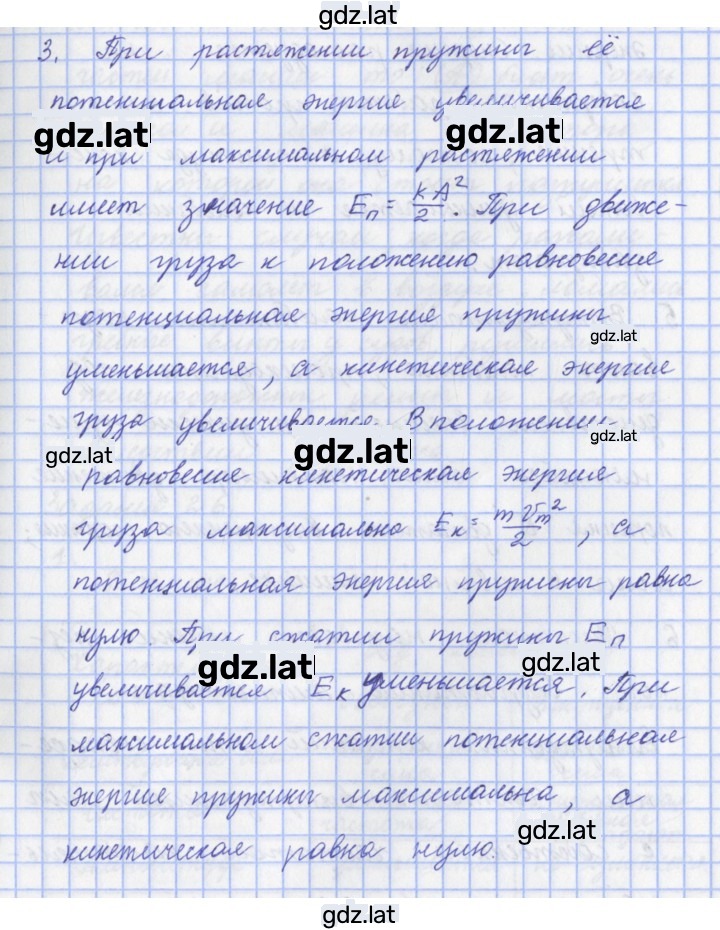 gdz.lat
3. При растяжении пружины её
потенциальная энергия увеличивается
gdz.lat gdz.lat
и при максимальном растяжении
имеет значение Eп = kA²/2. При движе-
нии груза к положению равновесия
потенциальная энергия пружины
gdz.lat
уменьшается, а кинетическая энергия
груза увеличивается. В положении
gdz.lat gdz.lat gdz.lat
равновесия кинетическая энергия
груза максимально Eк = mv_m²/2, а
потенциальная энергия пружины равна
нулю. При сжатии пружины Eп
gdz.lat gdz.lat
увеличивается Eк уменьшается. При
максимальном сжатии потенциальная
энергия пружины максимальна, а
gdz.lat
кинетическая равна нулю.
gdz.lat